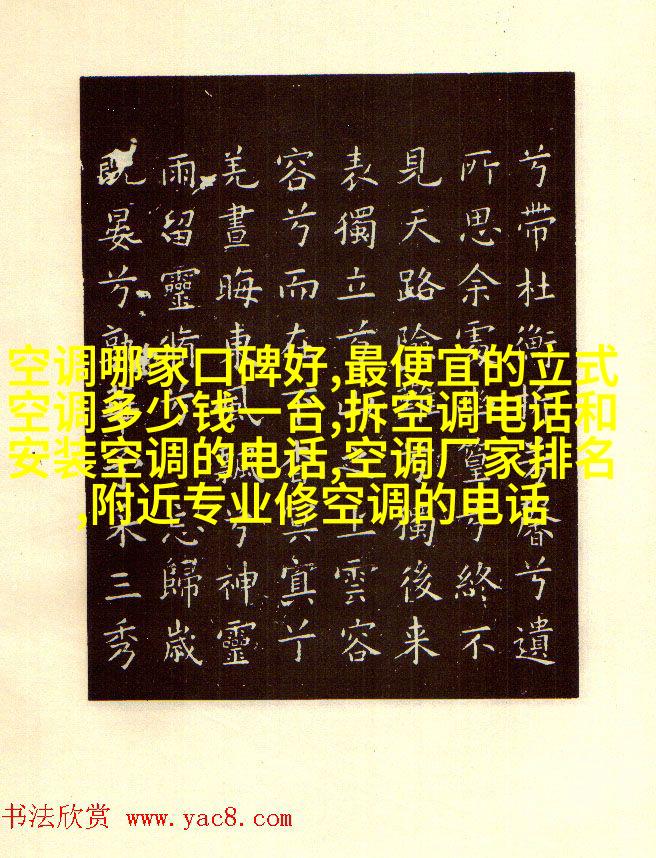 兮帶杜衡芳馨兮遺
所思余處篁兮終不
見天路險兮獨後来
表獨立兮山之上雲容
容兮而在下冥冥兮
羌晝晦東風飄兮神靈
雨留靈脩兮忘歸歲
既晏兮孰華予三秀
空调哪家口碑好,最便宜的立式
空调多少钱一台,拆空调电话和
安装空调的电话,空调厂家排名
,附近专业修空调的电话
书法欣赏 www.yac8.com